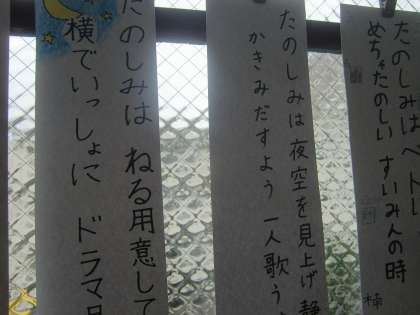 たのしみはベトレ
めちゃたのしい すいみんの時
たのしみは夜空を見上げ静
かきみだすよう 一人歌う
たのしみは ねる用意して
横でいっしょに ドラマ見